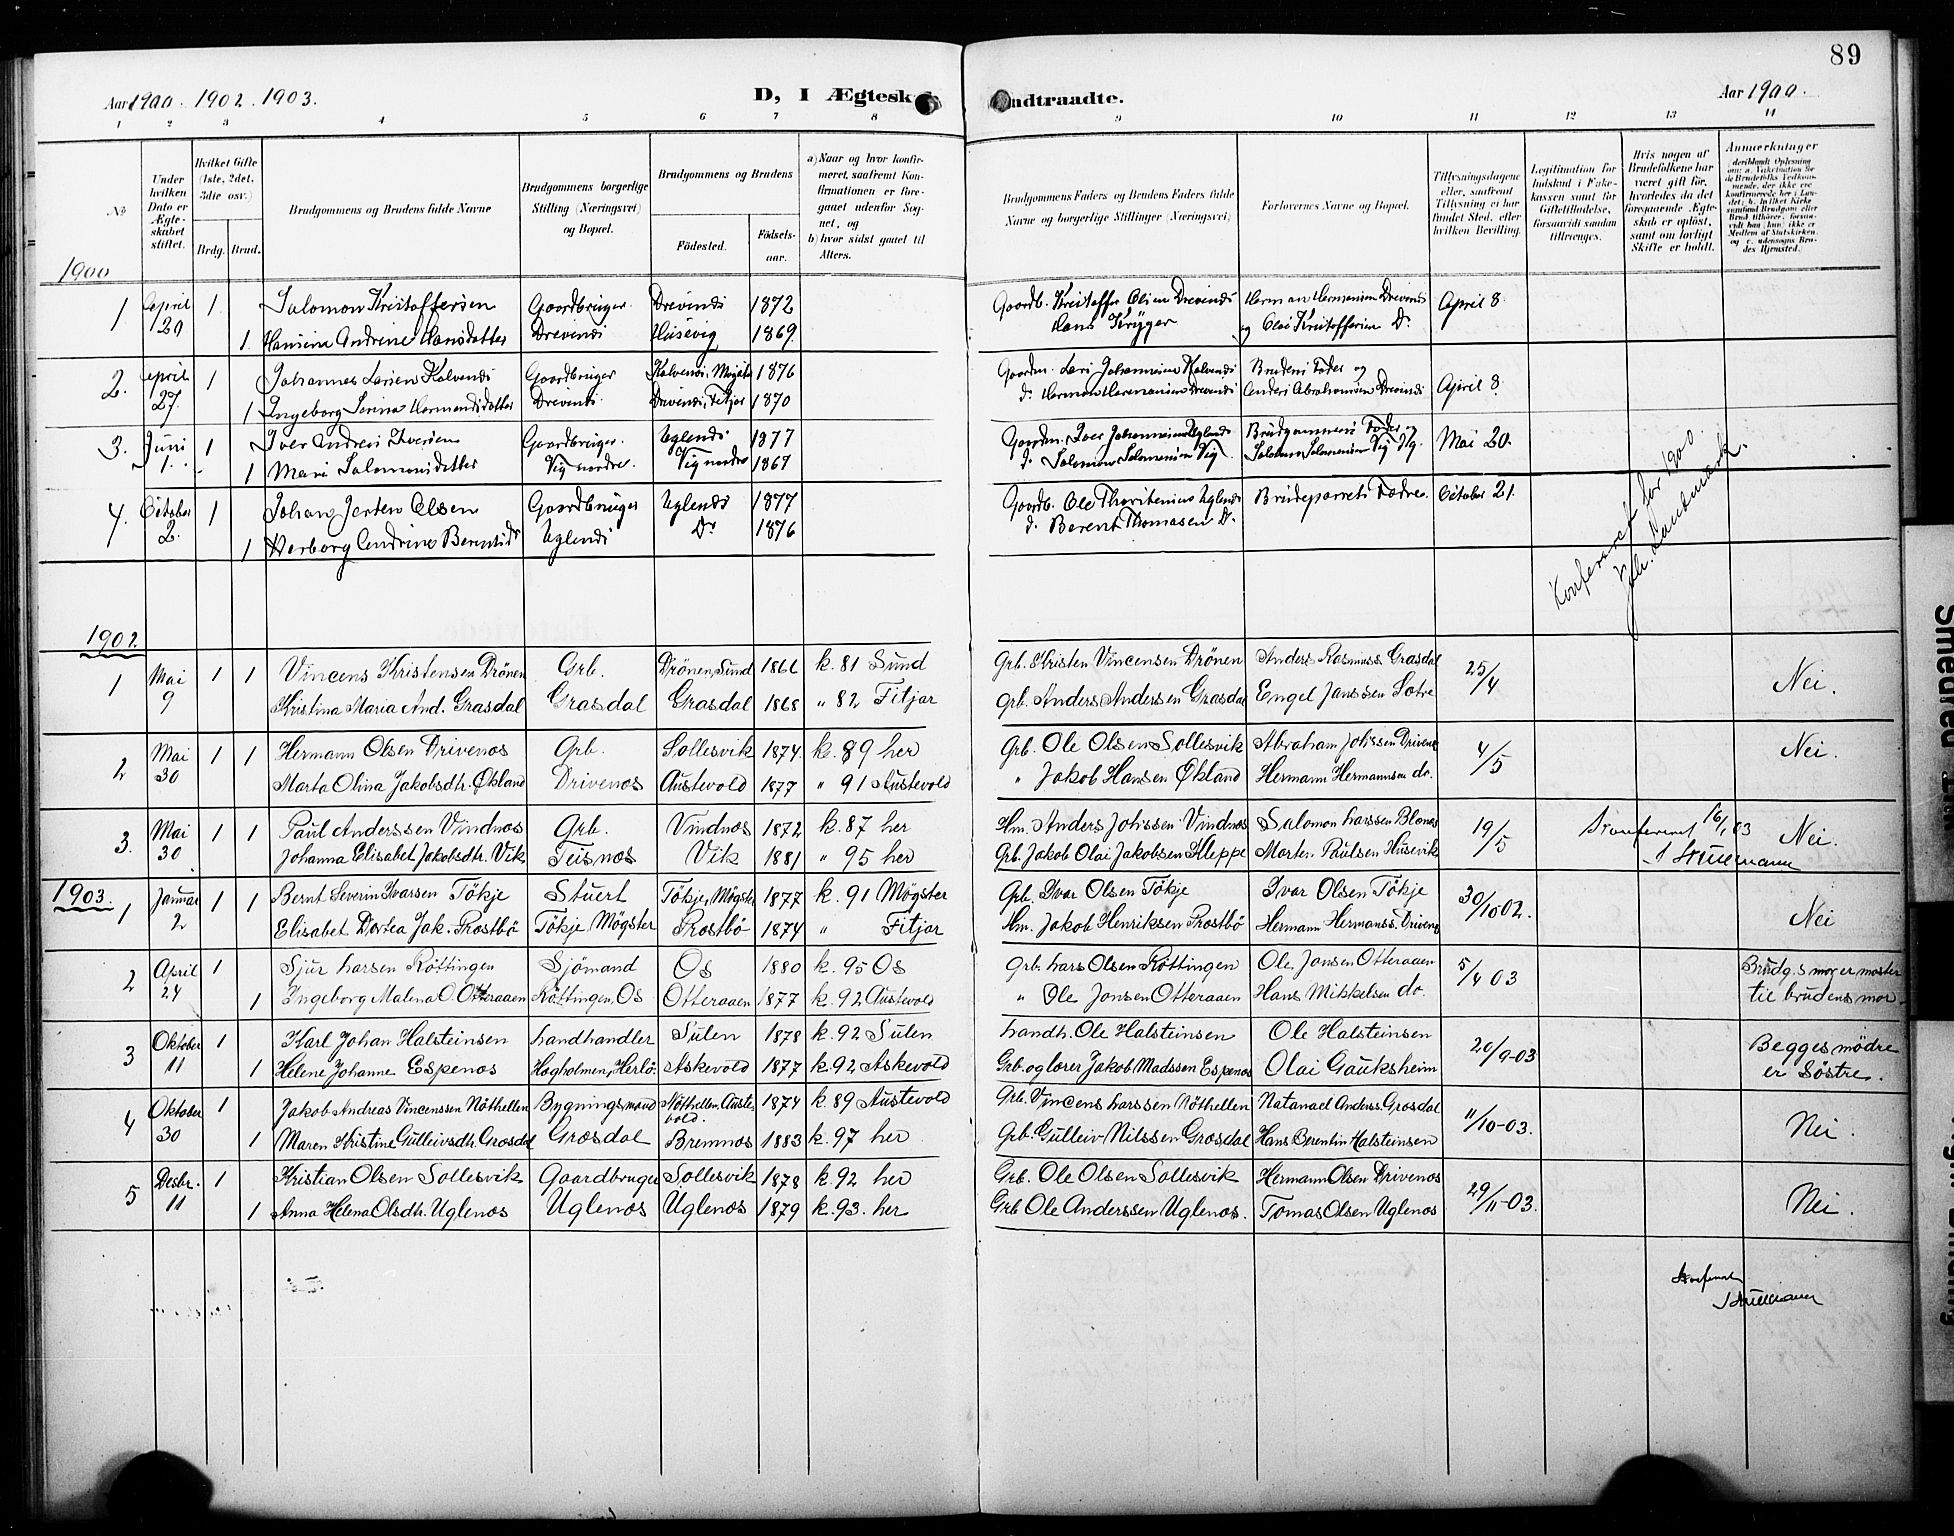 89
Aar 1900. 1902. 1903.
D, I Ægtesk
ndtraadte.
Aar 1900.
1 2 3 4 5 6 7 8 9 10 11 12 13 14
No
Under hvilken Dato er Ægteskabet stiftet.
Hvilket Gifte (1ste, 2det, 3die osv.)
Brdg. Brud.
Brudgommens og Brudens fulde Navne
Brudgommens borgerlige Stilling (Næringsvei) og Bopæl.
Brudgommens og Brudens
Fødested. Fødselsaar.
a) Naar og hvor konfirmeret, saafremt Konfirmationen er foregaaet udenfor Sognet, og
b) hvor sidst gaaet til Alters.
Brudgommens Faders og Brudens Faders fulde Navne og borgerlige Stillinger (Næringsvei)
Forlovernes Navne og Bopæl.
Tillysningsdagene eller, saafremt Tillysning ei har fundet Sted, efter hvilken Bevilling.
Legitimation for Indskud i Enkekassen samt for Giftetilladelse, forsaavidt saadan tiltrænges.
Hvis nogen af Brudefolkene har været gift før, hvorledes da det foregaaende Ægteskab er opløst, samt om lovligt Skifte er holdt.
Anmerkninger
1900
1 April 20 1 Salomon Kristoffersen Gaardbruger Drevends 1872 Gaardb. Kristoffer Olsen Drevends Herman Hermansen Drevends April 8
1 Hansina Andrine Hansdatter Drevends Husevig 1869. Hans Krüger og Olai Kristoffersen Do
2. April 27. 1 Johannes Larsen Kalvenes Gaardbruger Kalvenes, Møgster 1876 Gaardm. Lars Johannesen Kalvends Brudens Fader og April 8
1 Ingeborg Serina Hermandsdatter Drevends Drevends, Fitjar 1870 do. Herman Hermansen Drevends Anders Abrahamsen Drevends
3. Juni 1. 1 Iver Andreas Iversen Gaardbruger. Uglends 1877 Gaardm. Iver Johannesen Uglends Brudgommens Fader og Mai 20.
1 Mari Salomonsdatter Vig nordre. Vig nordre 1869 do. Salomon Salomonsen Vig Salomon Salomonsen Vig
4. October 2. 1 Johan Jorten Olsen Gaardbruger Uglends 1877 Gaardb. Ole Uglends Brudeparrets Fædre. October 21.
1 Herborg Andrine Berentsdr Uglends Do 1876 do. Berent Thomasen Do.
Konfereret for 1900
Joh. Landmark.
1902.
1 Mai 9 1 1 Vincens Kristensen Drönen Grb. Drönen, Sund 1866 k. 81 Sund Grb. Kristen Vincensen Drönen Anders Rasmuss. Grasdal 25/4 Nei.
Kristina Maria And. Grasdal Grasdal Grasdal 1868 " 82 Fitjar Grb. Anders Anderssen Grasdal Engel Janssen Sætre
2 Mai 30 1 1 Hermann Olsen Drivenæs Grb. Sollesvik 1874. k. 89 her Grb. Ole Olsen Sollesvik Abraham Johssen Drivenæs 4/5 Nei.
Marta Olina Jakobsdtr. Økland Drivenæs Austevold 1877 " 91 Austevold " Jakob Hansen Økland Hermann Hermannsen do.
3. Mai 30 1 1 Paul Anderssen Vindnæs Grb. Vindnæs 1872 k. 87 her Hm. Anders Johssen Vindnæs Salomon Larssen Blænæs 19/5 Nei.
Johanna Elisabet Jakobsdtr. Vik. Teisnæs Vik 1881 " 95 her Grb. Jakob Olai Jakobsen Kleppe Morten Paulsen Husevik
Konfereret 16/1 03
1903.
1 Januar 2 1 1 Bernt Severin Ivarsen Tökje Stuert Tökje, Møgster 1877 k. 91 Møgster Grb. Ivar Olsen Tökje Ivar Olsen Tökje 30/10 02. Nei
Elisabet Dortea Jak. Prostbö Tökje, Møgster Prostbö 1874 " Fitjar Hm. Jakob Henriksen Prostbö Hermann Hermanss. Drivenæs
2 April 24 1 Sjur Larsen Röttingen Sjömand Os 1880 k. 95 Os Grb. Lars Olsen Röttingen Ole Jonsen Otteraaen 5/4 03 Brudg.s mor er moster
1 Ingeborg Malena O. Otteraaen Röttingen, Os Otteraaen 1877 k. 92 Austevold " Ole Jonsen Otteraaen Hans Mikkelsen do. til brudens mor.
3 Oktober 11 1 Karl Johan Halsteinsen Landhandler Sulen 1878 k. 92 Sulen Landh. Ole Halsteinsen Ole Halsteinsen 20/9-03 Begges mødre
1 Helene Johanne Espenæs Hagholmen, Herlö. Askevold 1877 k. 92 Askevold Grb. og lærer Jakob Madssen Espenæs Olai Gauksheim er Söstre.
4 Oktober 30 1 Jakob Andreas Vincenssen Nöthellen Bygningsmand Nöthellen, Austevold. 1874 k. 89 Austevold Grb. Vincens Larssen Nöthellen Natanael Anderss. Grasdal 11/10-03. Nei.
1 Maren Kristine Gulleivsdtr. Grasdal Grasdal Bremnes 1883 k. 97 her Grb. Gulleiv Nilssen Grasdal Hans Berentin Halsteinsen
5 Desbr. 11 1 Kristian Olsen Sollesvik Gaardbruger Sollesvik 1878 k. 92 her Grb. Ole Olsen Sollesvik Hermann Olsen Drivenæs 29/11-03. Nei.
1 Anna Helena Olsdtr. Uglenæs Uglenæs Uglenæs 1879 k. 93. her Grb Ole Anderssen Uglenæs. Tomas Olsen Uglenæs
Konfereret